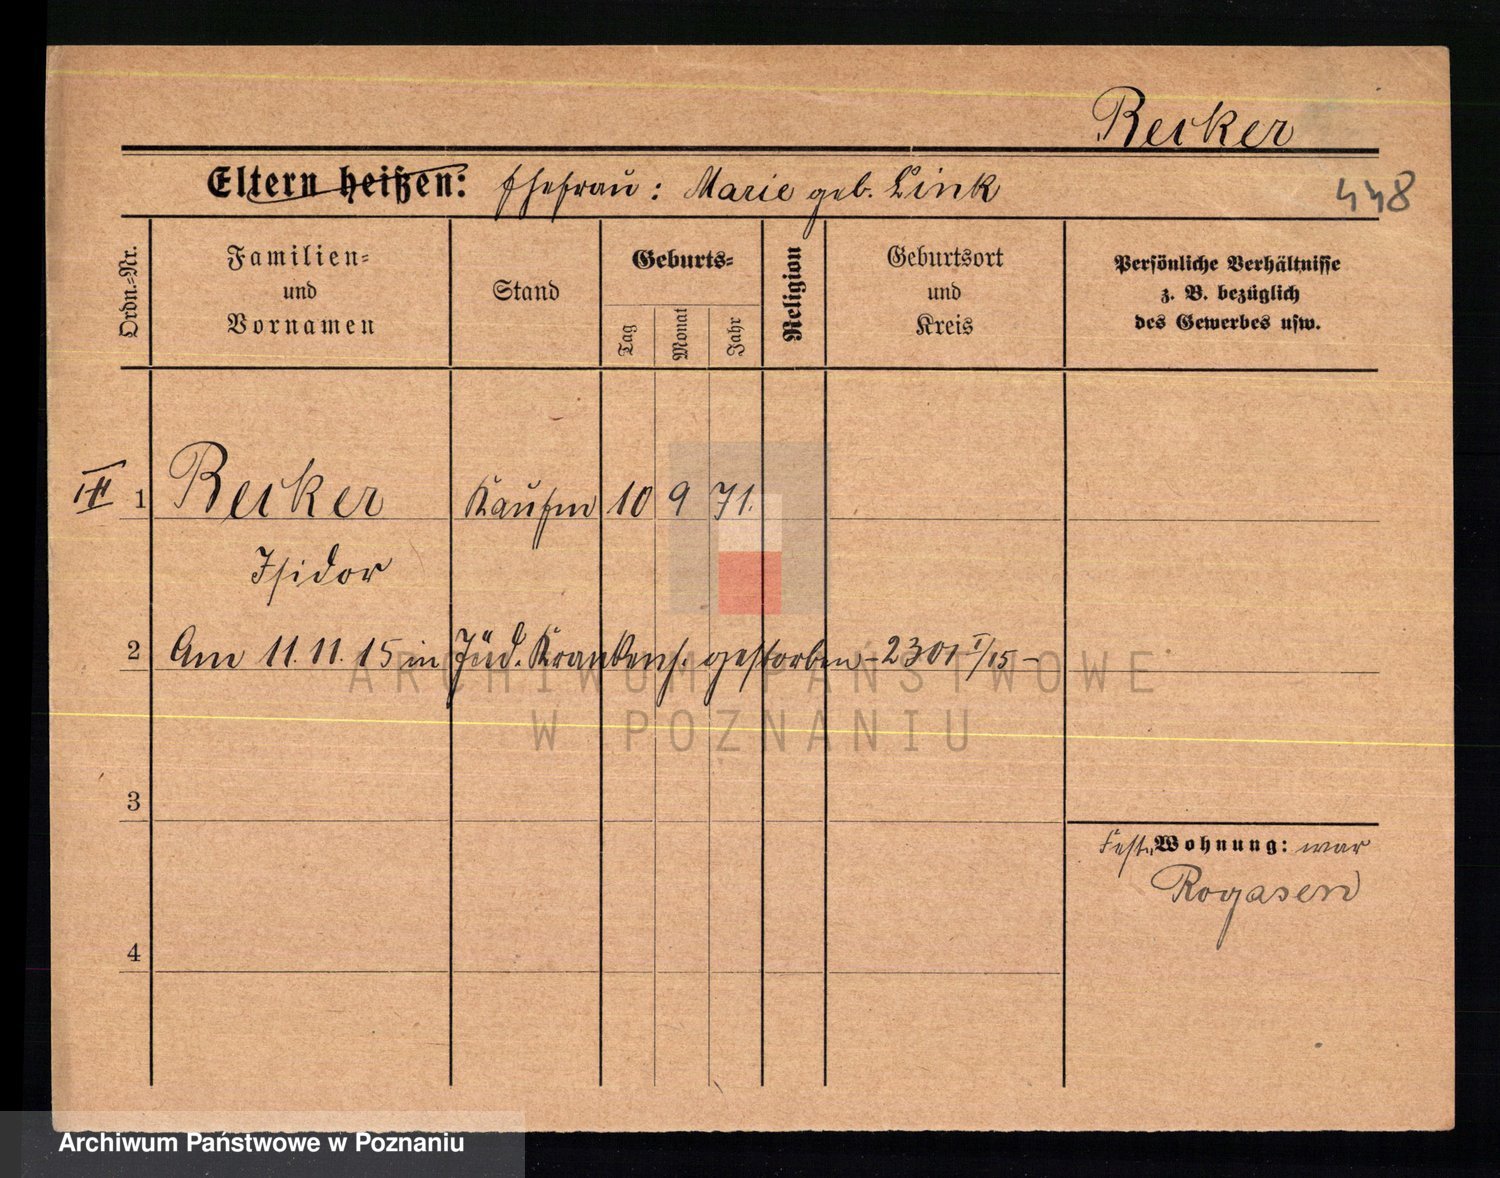 Becker
Eltern heißen: Ehefrau: Marie geb. Link
448
Ordn.-Nr.
Familien-
und
Vornamen
Stand
Geburts-
Tag
Monat
Jahr
Religion
Geburtsort
und
Kreis
Persönliche Verhältnisse
z. B. bezüglich
des Gewerbes usw.
III 1 Becker Kaufm 10 9 71.
Isidor
2 Am 11.11.15 in Jüd. Krankenh. gestorben - 2301 I/15 -
ARCHIWUM PAŃSTWOWE
W POZNANIU
3
Feste Wohnung: war
Rogasen
4
Archiwum Państwowe w Poznaniu